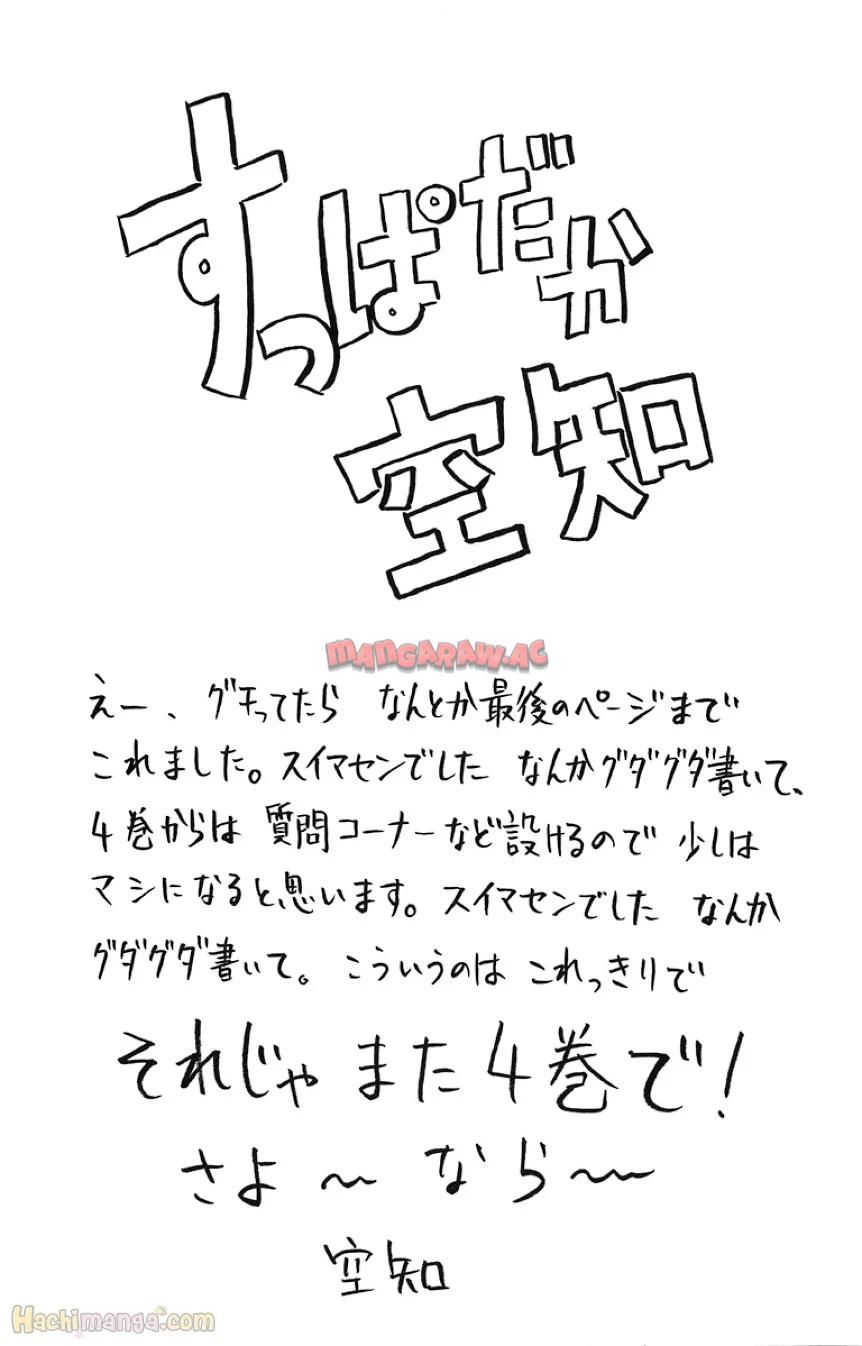 すっぱだか
空知
MANGARAW.AC
えー、グチってたら なんとか最後のページまで
これました。スイマセンでした なんかグダグダ書いて、
4巻からは 質問コーナーなど設けるので 少しは
マシになると思います。スイマセンでした なんか
グダグダ書いて。こういうのは これっきりで
それじゃ また 4巻で!
さよ〜 なら〜
空知
Hachimanga.com